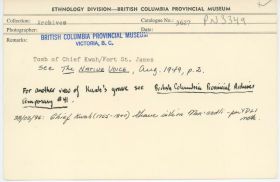 ETHNOLOGY DIVISION—BRITISH COLUMBIA PROVINCIAL MUSEUM
Collection: Archives Catalogue No. 3627 PN3349
Photographer: Date:
Remarks: BRITISH COLUMBIA PROVINCIAL MUSEUM
VICTORIA, B. C.
Tomb of Chief Kwah/Fort St. James
SEE THE NATIVE VOICE, Aug. 1949, p.2.
For another view of Kwah's grave see British Columbia Provincial Archives
#41.
Chief Kwah (1755-1840)
note.